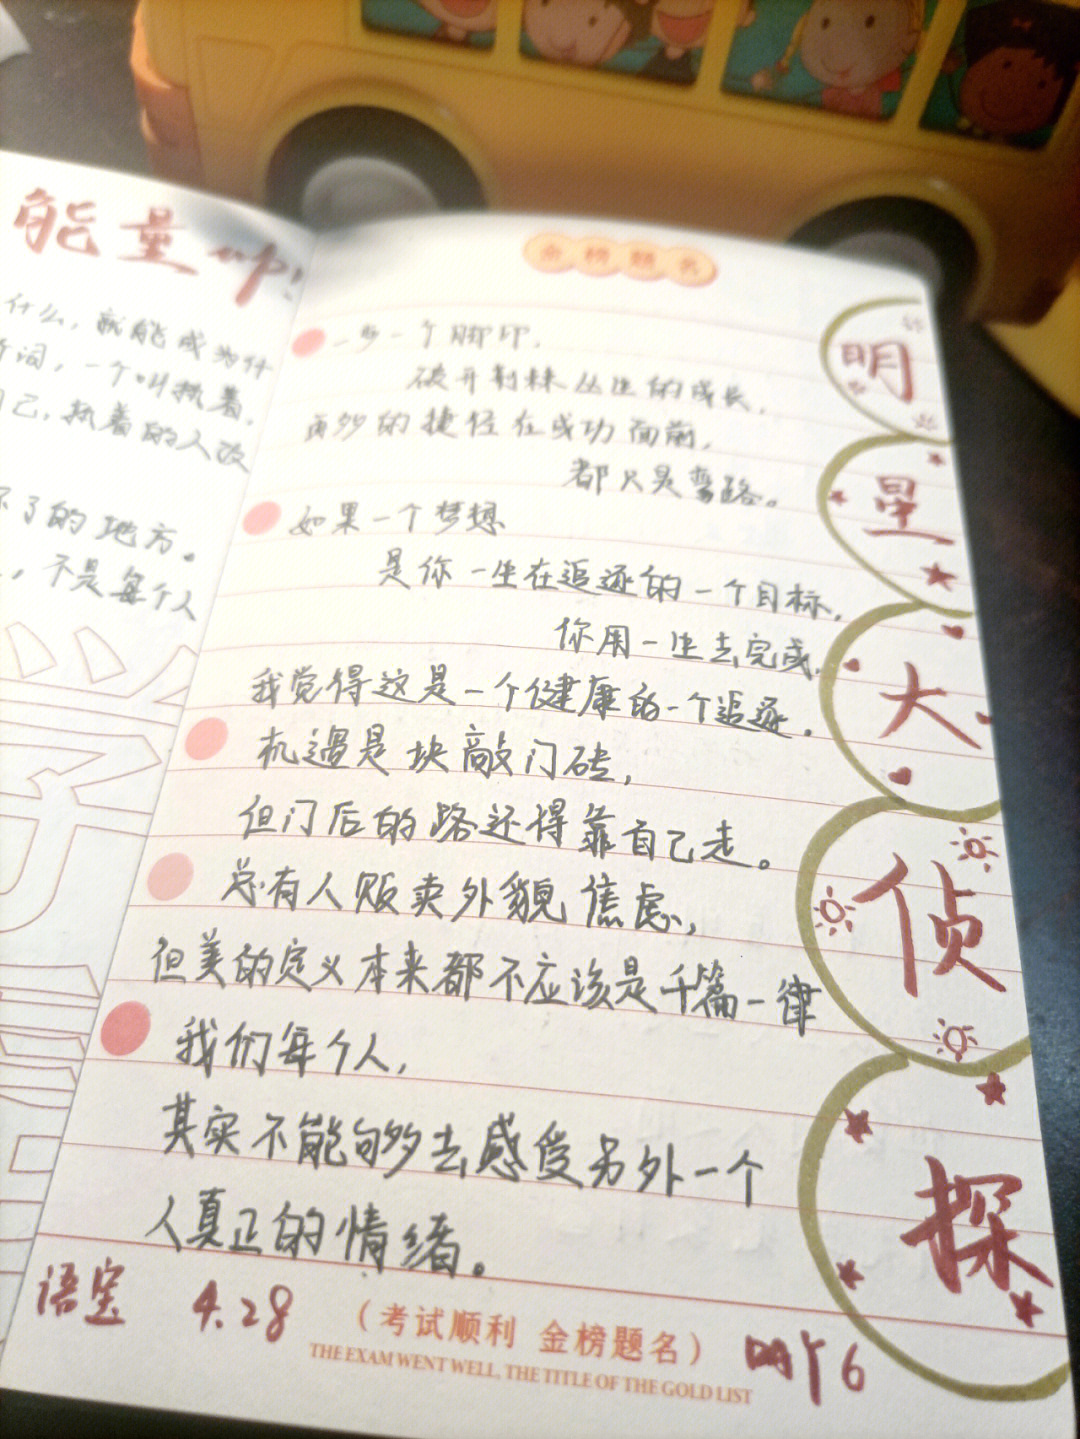 能量up!
什么,就能成为什
个词,一个叫执着,
自己,执着的人改
不了的地方。
,不是每个人
学
金榜题名
一步一个脚印,
破开荆棘丛生的成长,
再妙的捷径在成功面前,
都只是弯路。
如果一个梦想
是你一生在追逐的一个目标,
你用一生去完成,
我觉得这是一个健康的一个追逐。
机遇是块敲门砖,
但门后的路还得靠自己走。
总有人贩卖外貌焦虑,
但美的定义本来都不应该是千篇一律
我们每个人,
其实不能够去感受另外一个
人真正的情绪。
明
星
大
侦
探
语宝 4.28
(考试顺利 金榜题名)
THE EXAM WENT WELL, THE TITLE OF THE GOLD LIST
6